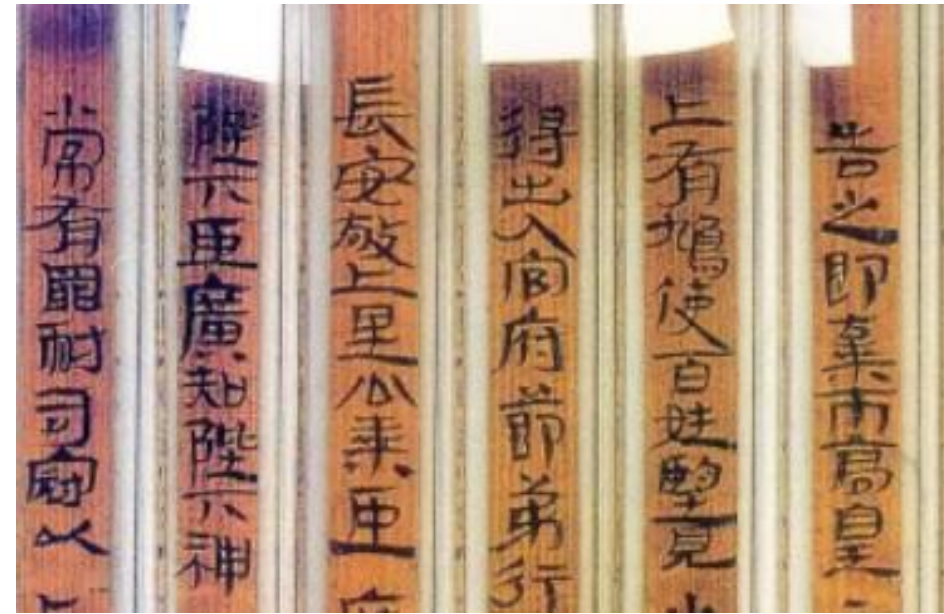 告之即棄市高皇
上有鳩使百姓望見
得出入官府節弟行
長安敬上里公乘臣
陛下臣廣知陛下神
常有罪耐司寇以